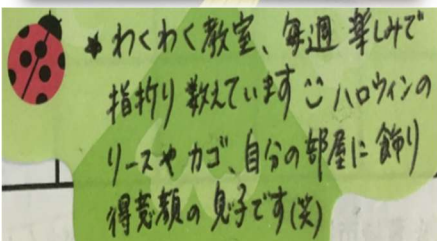 ★わくわく教室、毎週 楽しみで
指折り数えています☺ハロウィンの
リースやカゴ、自分の部屋に飾り
得意顔の息子です(笑)